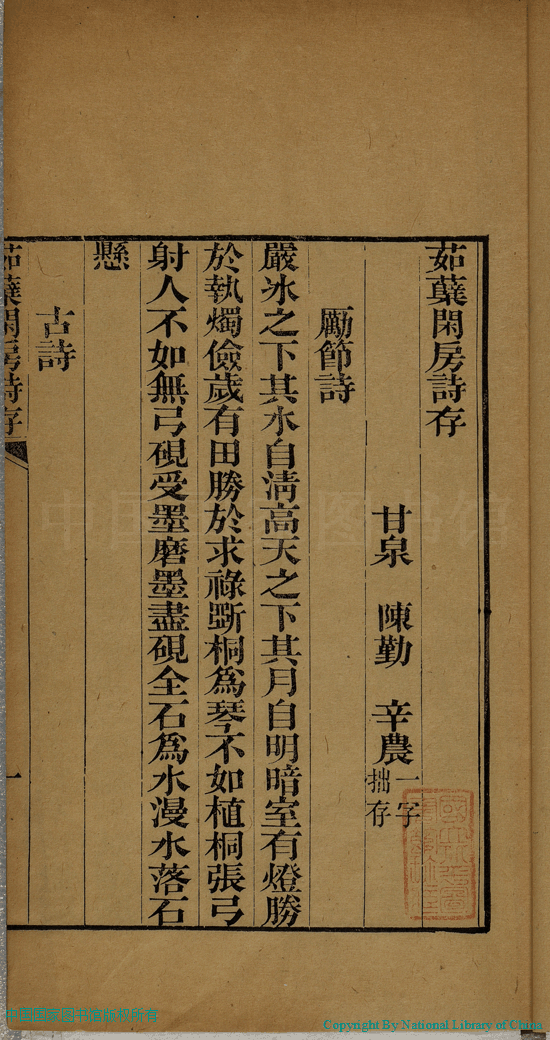 茹蘗閑房詩存
甘泉 陳勤 辛農 一字拙存
勵節詩
嚴冰之下其水自淸高天之下其月自明暗室有燈勝
於執燭儉歲有田勝於求祿斲桐爲琴不如植桐張弓
射人不如無弓硯受墨磨墨盡硯全石爲水漫水落石
懸
古詩
茹蘗閑房詩存
一
中国国家图书馆
中国国家图书馆版权所有
Copyright By National Library of China